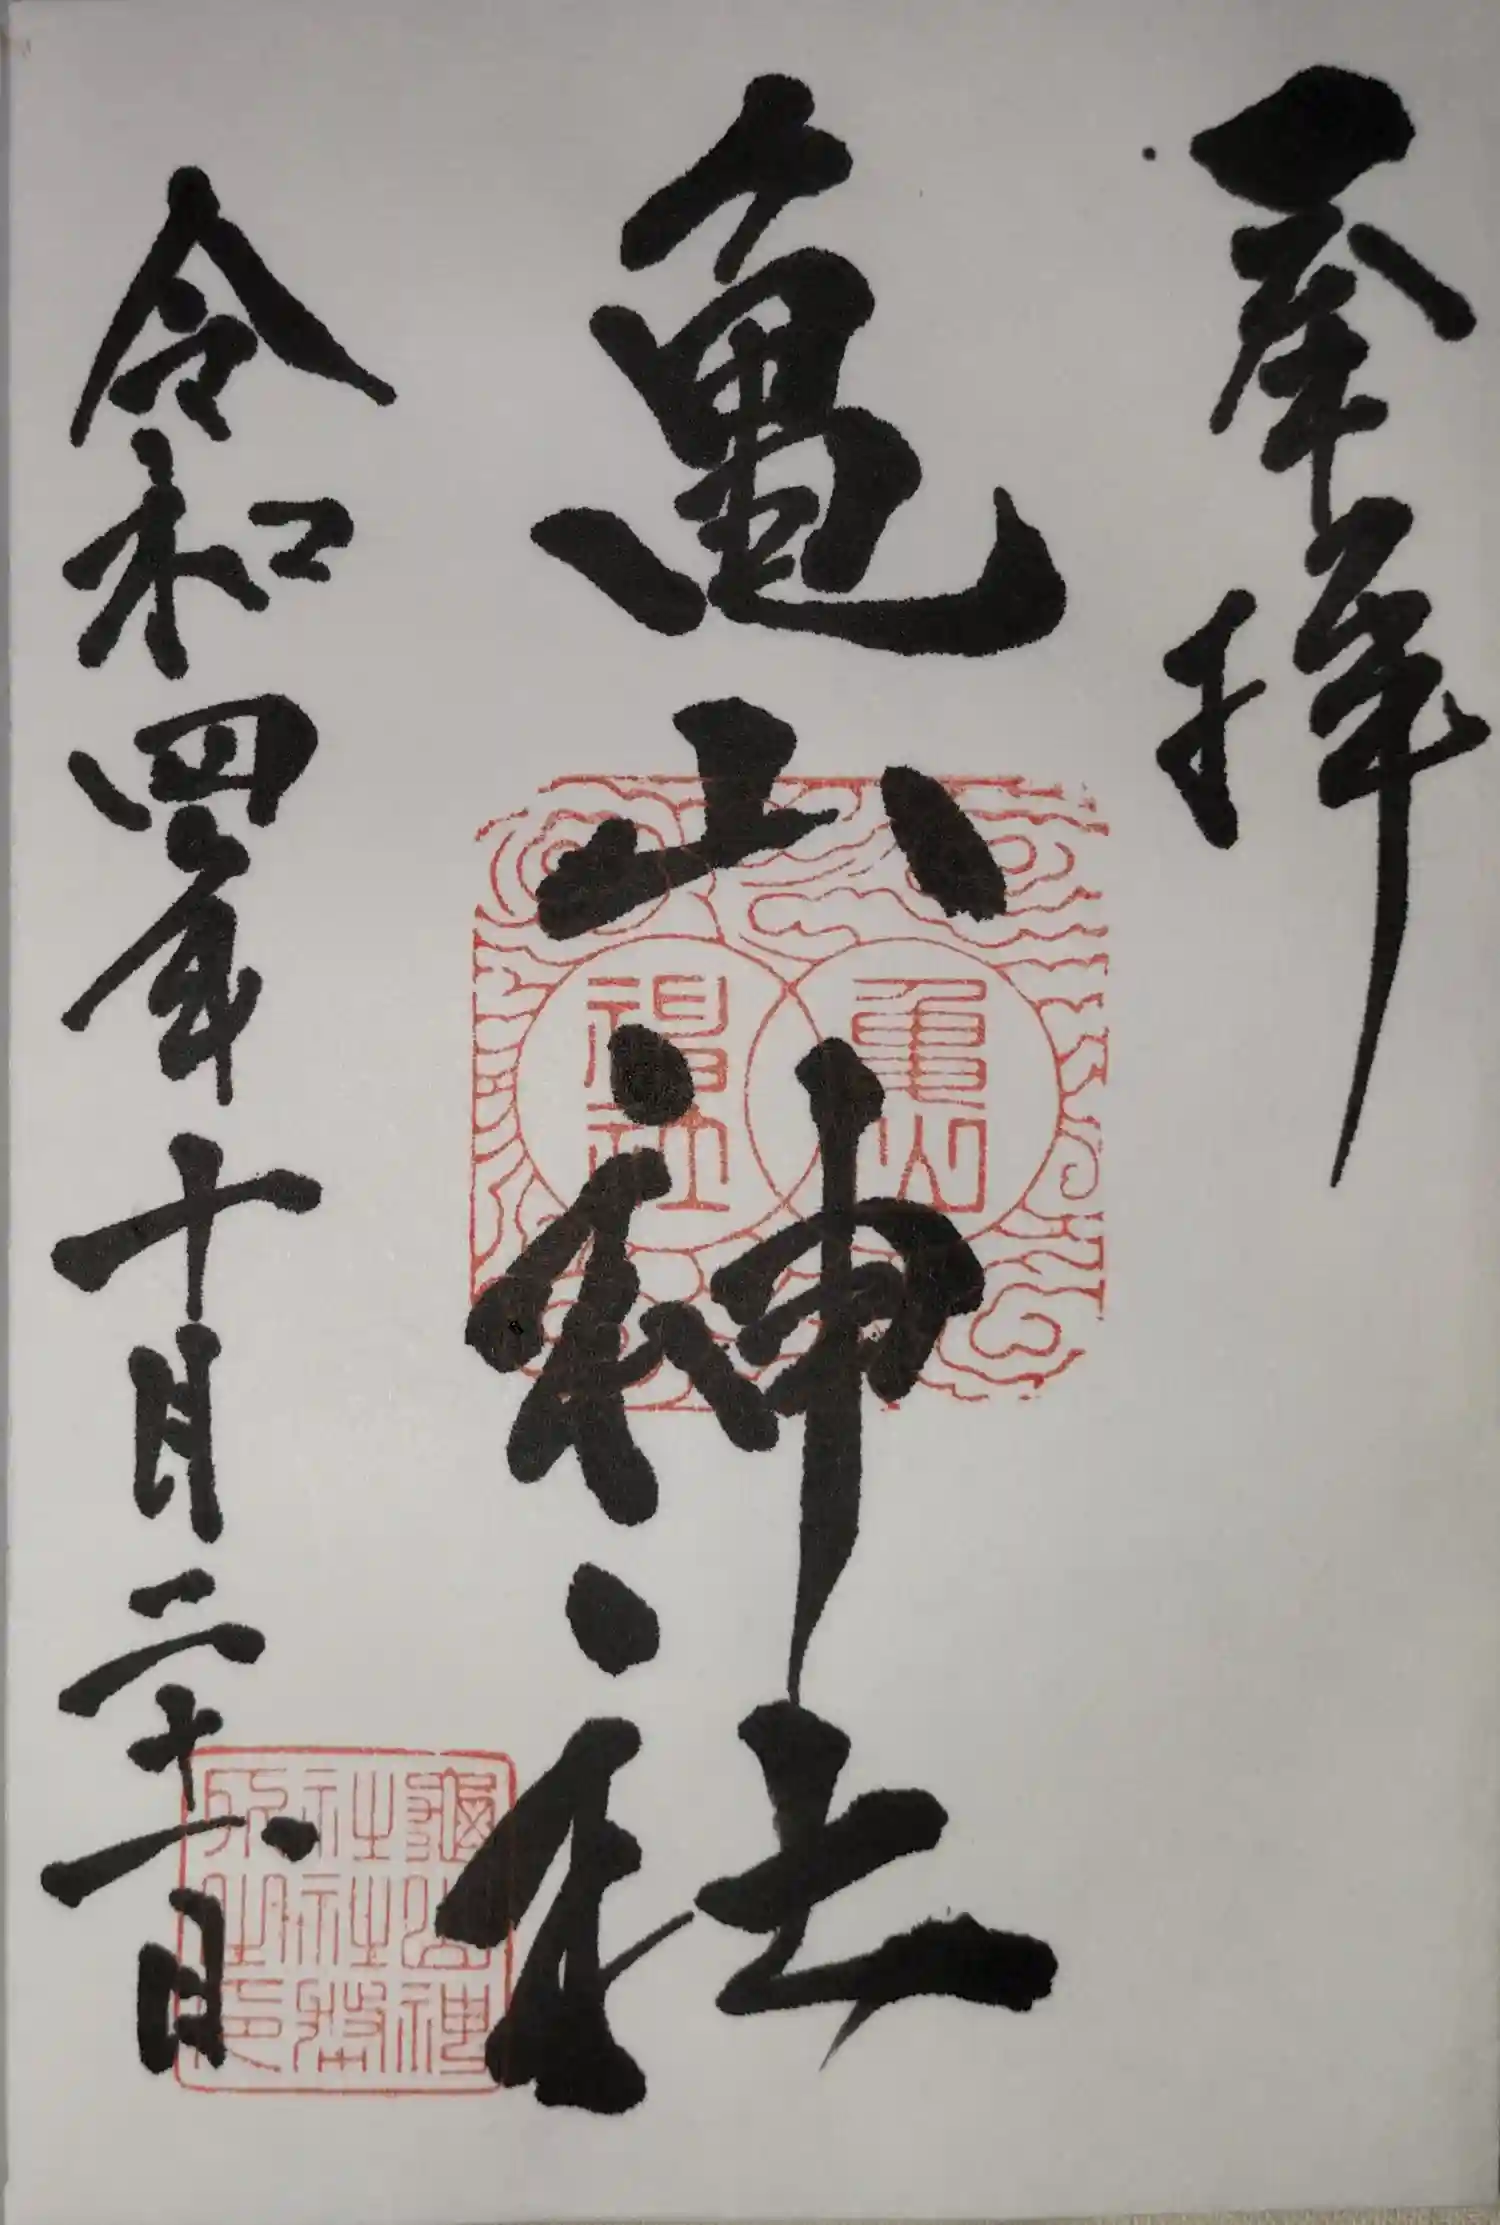 奉拝
亀山神社
令和四年十月二十一日
龜山
神社
龜山神
社社務
所之印